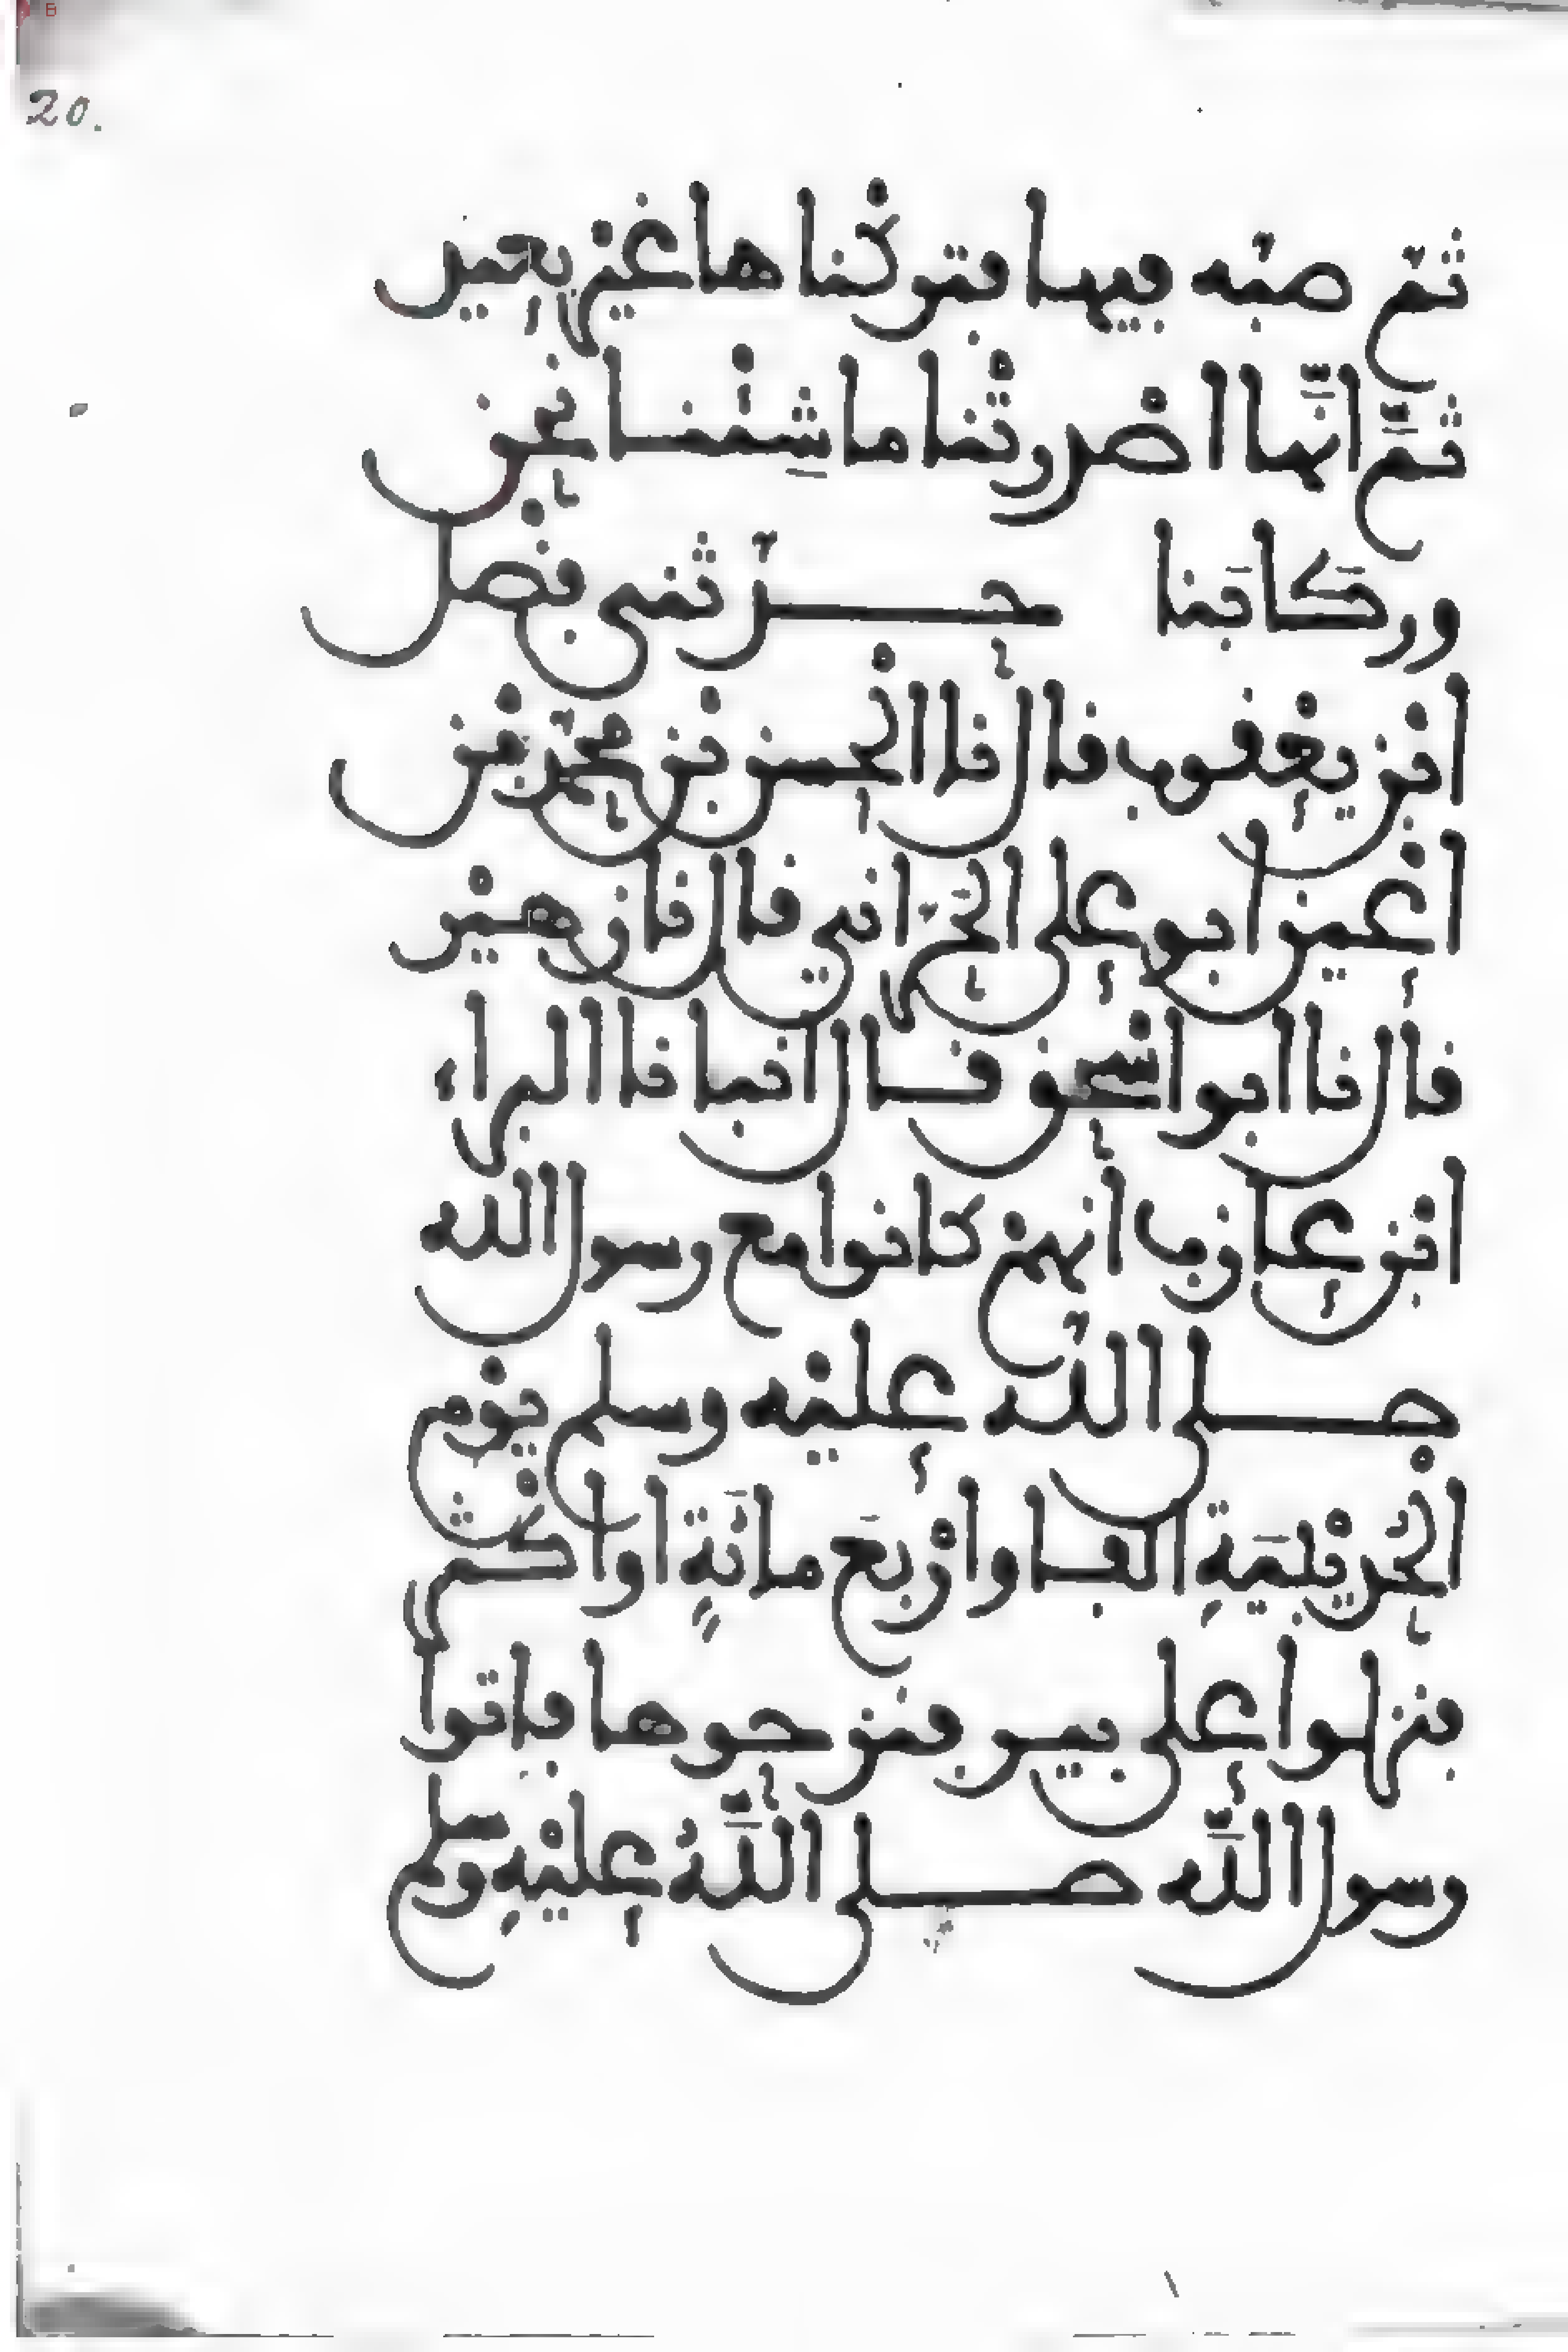 20.
ثم صبه فيها فتركناها غير بعيد
ثم انها اصدرتنا ما شئنا نحن
وركابنا حدثني فضل
ابن يعقوب قال نا الحسن بن محمد بن
اعين ابو علي الحراني قال نا زهير
قال نا ابو اسحق قال انبا نا البراء
ابن عازب أنهم كانوا مع رسول الله
صلى الله عليه وسلم يوم
الحديبية الفا واربع مائة او اكثر
فنزلوا على بير فنزحوها فاتوا
رسول الله صلى الله عليه وسلم